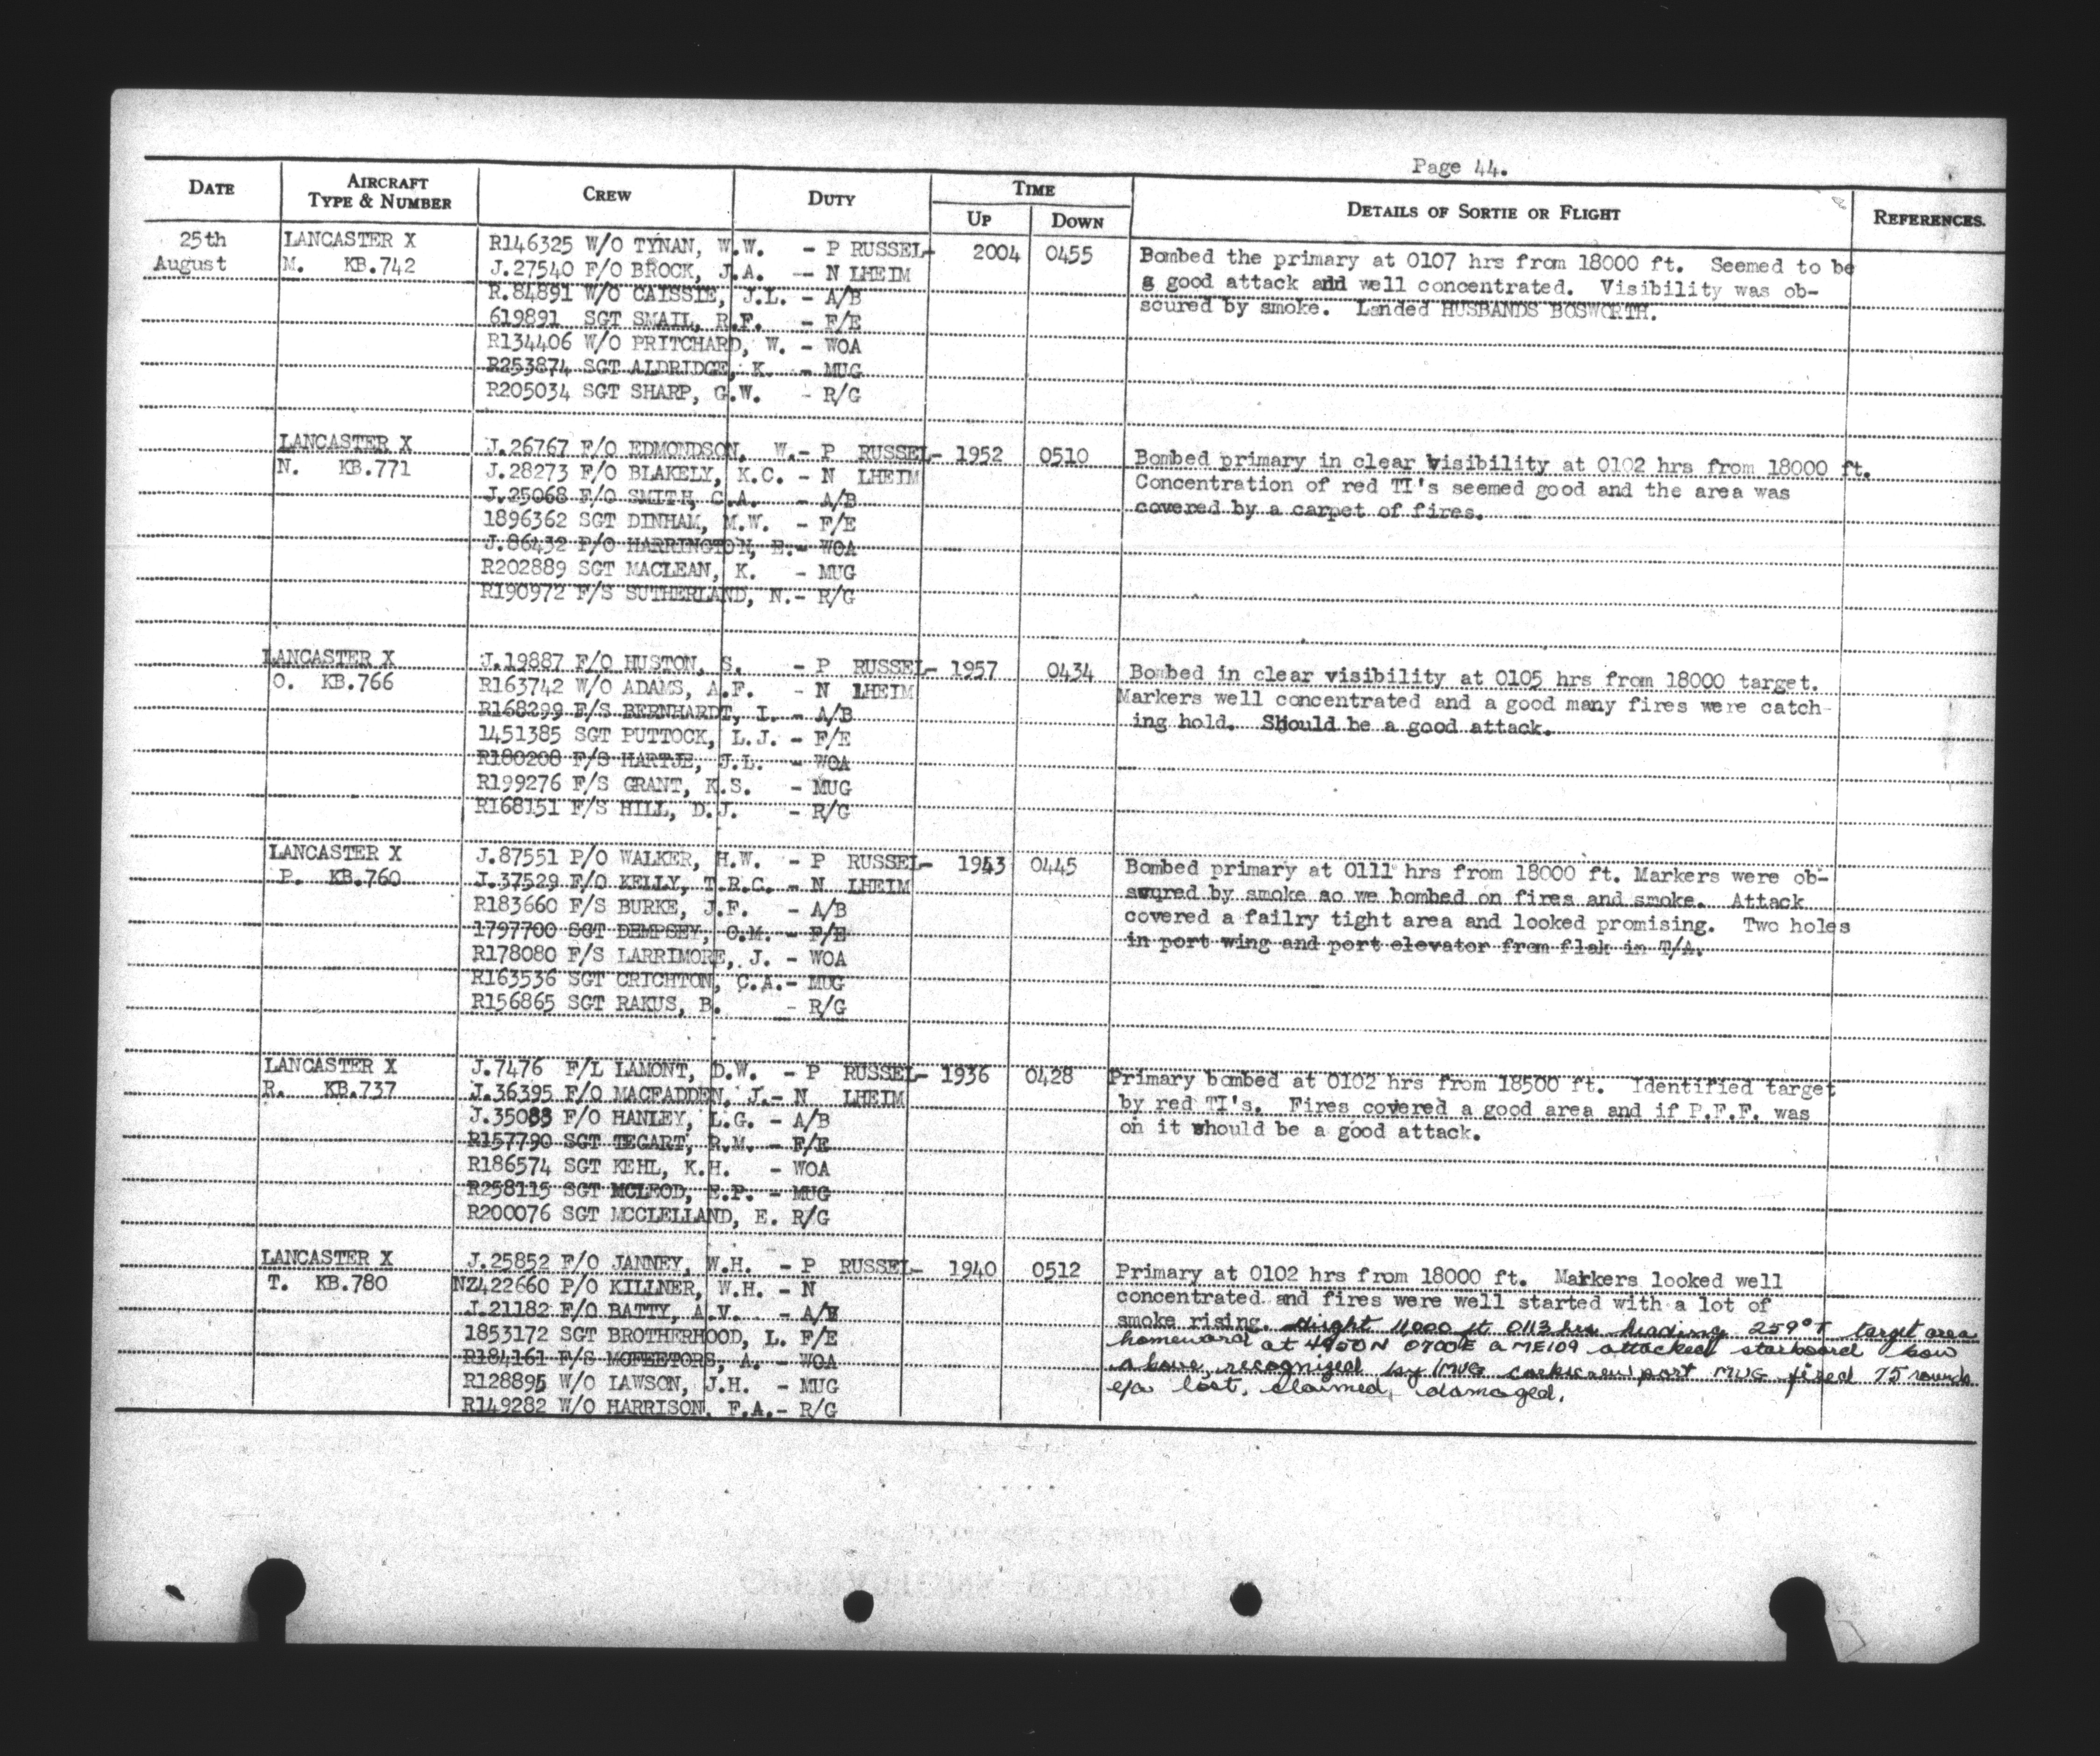 Page 44.
DATE AIRCRAFT TYPE & NUMBER CREW DUTY TIME UP DOWN DETAILS OF SORTIE OR FLIGHT REFERENCES.
25th LANCASTER X R146325 W/O TYNAN, W.W. - P RUSSEL- 2004 0455 Bombed the primary at 0107 hrs from 18000 ft. Seemed to be
August M. KB.742 J.27540 F/O BROCK, J.A. -- N LHEIM a good attack and well concentrated. Visibility was ob-
R.84891 W/O CAISSIE, J.L. - A/B scured by smoke. Landed HUSBANDS BOSWORTH.
619891 SGT SMAIL, R.F. - F/E
R134406 W/O PRITCHARD, W. - WOA
R253874 SGT ALDRIDGE, K. - MUG
R205034 SGT SHARP, G.W. - R/G
LANCASTER X J.26767 F/O EDMONDSON, W.- P RUSSEL- 1952 0510 Bombed primary in clear visibility at 0102 hrs from 18000 ft.
N. KB.771 J.28273 F/O BLAKELY, K.C. - N LHEIM Concentration of red TI's seemed good and the area was
J.25068 F/O SMITH, C.A. - A/B covered by a carpet of fires.
1896362 SGT DINHAM, M.W. - F/E
J.86432 P/O HARRINGTON, E.- WOA
R202889 SGT MACLEAN, K. - MUG
R190972 F/S SUTHERLAND, N.- R/G
LANCASTER X J.19887 F/O HUSTON, S. - P RUSSEL- 1957 0434 Bombed in clear visibility at 0105 hrs from 18000 target.
O. KB.766 R163742 W/O ADAMS, A.F. - N LHEIM Markers well concentrated and a good many fires were catch-
R168299 F/S BERNHARDT, I. - A/B ing hold. Should be a good attack.
1451385 SGT PUTTOCK, L.J. - F/E
R180208 F/S HARTJE, J.L. - WOA
R199276 F/S GRANT, K.S. - MUG
R168151 F/S HILL, D.J. - R/G
LANCASTER X J.87551 P/O WALKER, H.W. - P RUSSEL- 1943 0445 Bombed primary at 0111 hrs from 18000 ft. Markers were ob-
P. KB.760 J.37529 F/O KELLY, T.R.C. - N LHEIM scured by smoke so we bombed on fires and smoke. Attack
R183660 F/S BURKE, J.F. - A/B covered a failry tight area and looked promising. Two holes
1797700 SGT DEMPSEY, C.M. - F/E in port wing and port elevator from flak in T/A.
R178080 F/S LARRIMORE, J. - WOA
R163536 SGT CRICHTON, C.A.- MUG
R156865 SGT RAKUS, B. - R/G
LANCASTER X J.7476 F/L LAMONT, D.W. - P RUSSEL- 1936 0428 Primary bombed at 0102 hrs from 18500 ft. Identified target
R. KB.737 J.36395 F/O MACFADDEN, J.- N LHEIM by red TI's. Fires covered a good area and if P.F.F. was
J.35088 F/O HANLEY, L.G. - A/B on it should be a good attack.
R157790 SGT TEGART, R.M. - F/E
R186574 SGT KEHL, K.H. - WOA
R258115 SGT MCLEOD, E.P. - MUG
R200076 SGT MCCLELLAND, E. R/G
LANCASTER X J.25852 F/O JANNEY, W.H. - P RUSSEL- 1940 0512 Primary at 0102 hrs from 18000 ft. Markers looked well
T. KB.780 NZ422660 P/O KILLNER, W.H. - N concentrated and fires were well started with a lot of
J.21182 F/O BATTY, A.V. - A/B smoke rising. height 11,000 ft 0113 hrs heading 259°T target area
1853172 SGT BROTHERHOOD, L. F/E homeward at 4950N 0700E a ME109 attacked starboard bow
R184161 F/S MOFEETORS, A. - WOA above, recognized by MUG corkscrew port MUG fired 75 rounds
R128895 W/O LAWSON, J.H. - MUG e/a lost, claimed, damaged.
R149282 W/O HARRISON, F.A.- R/G